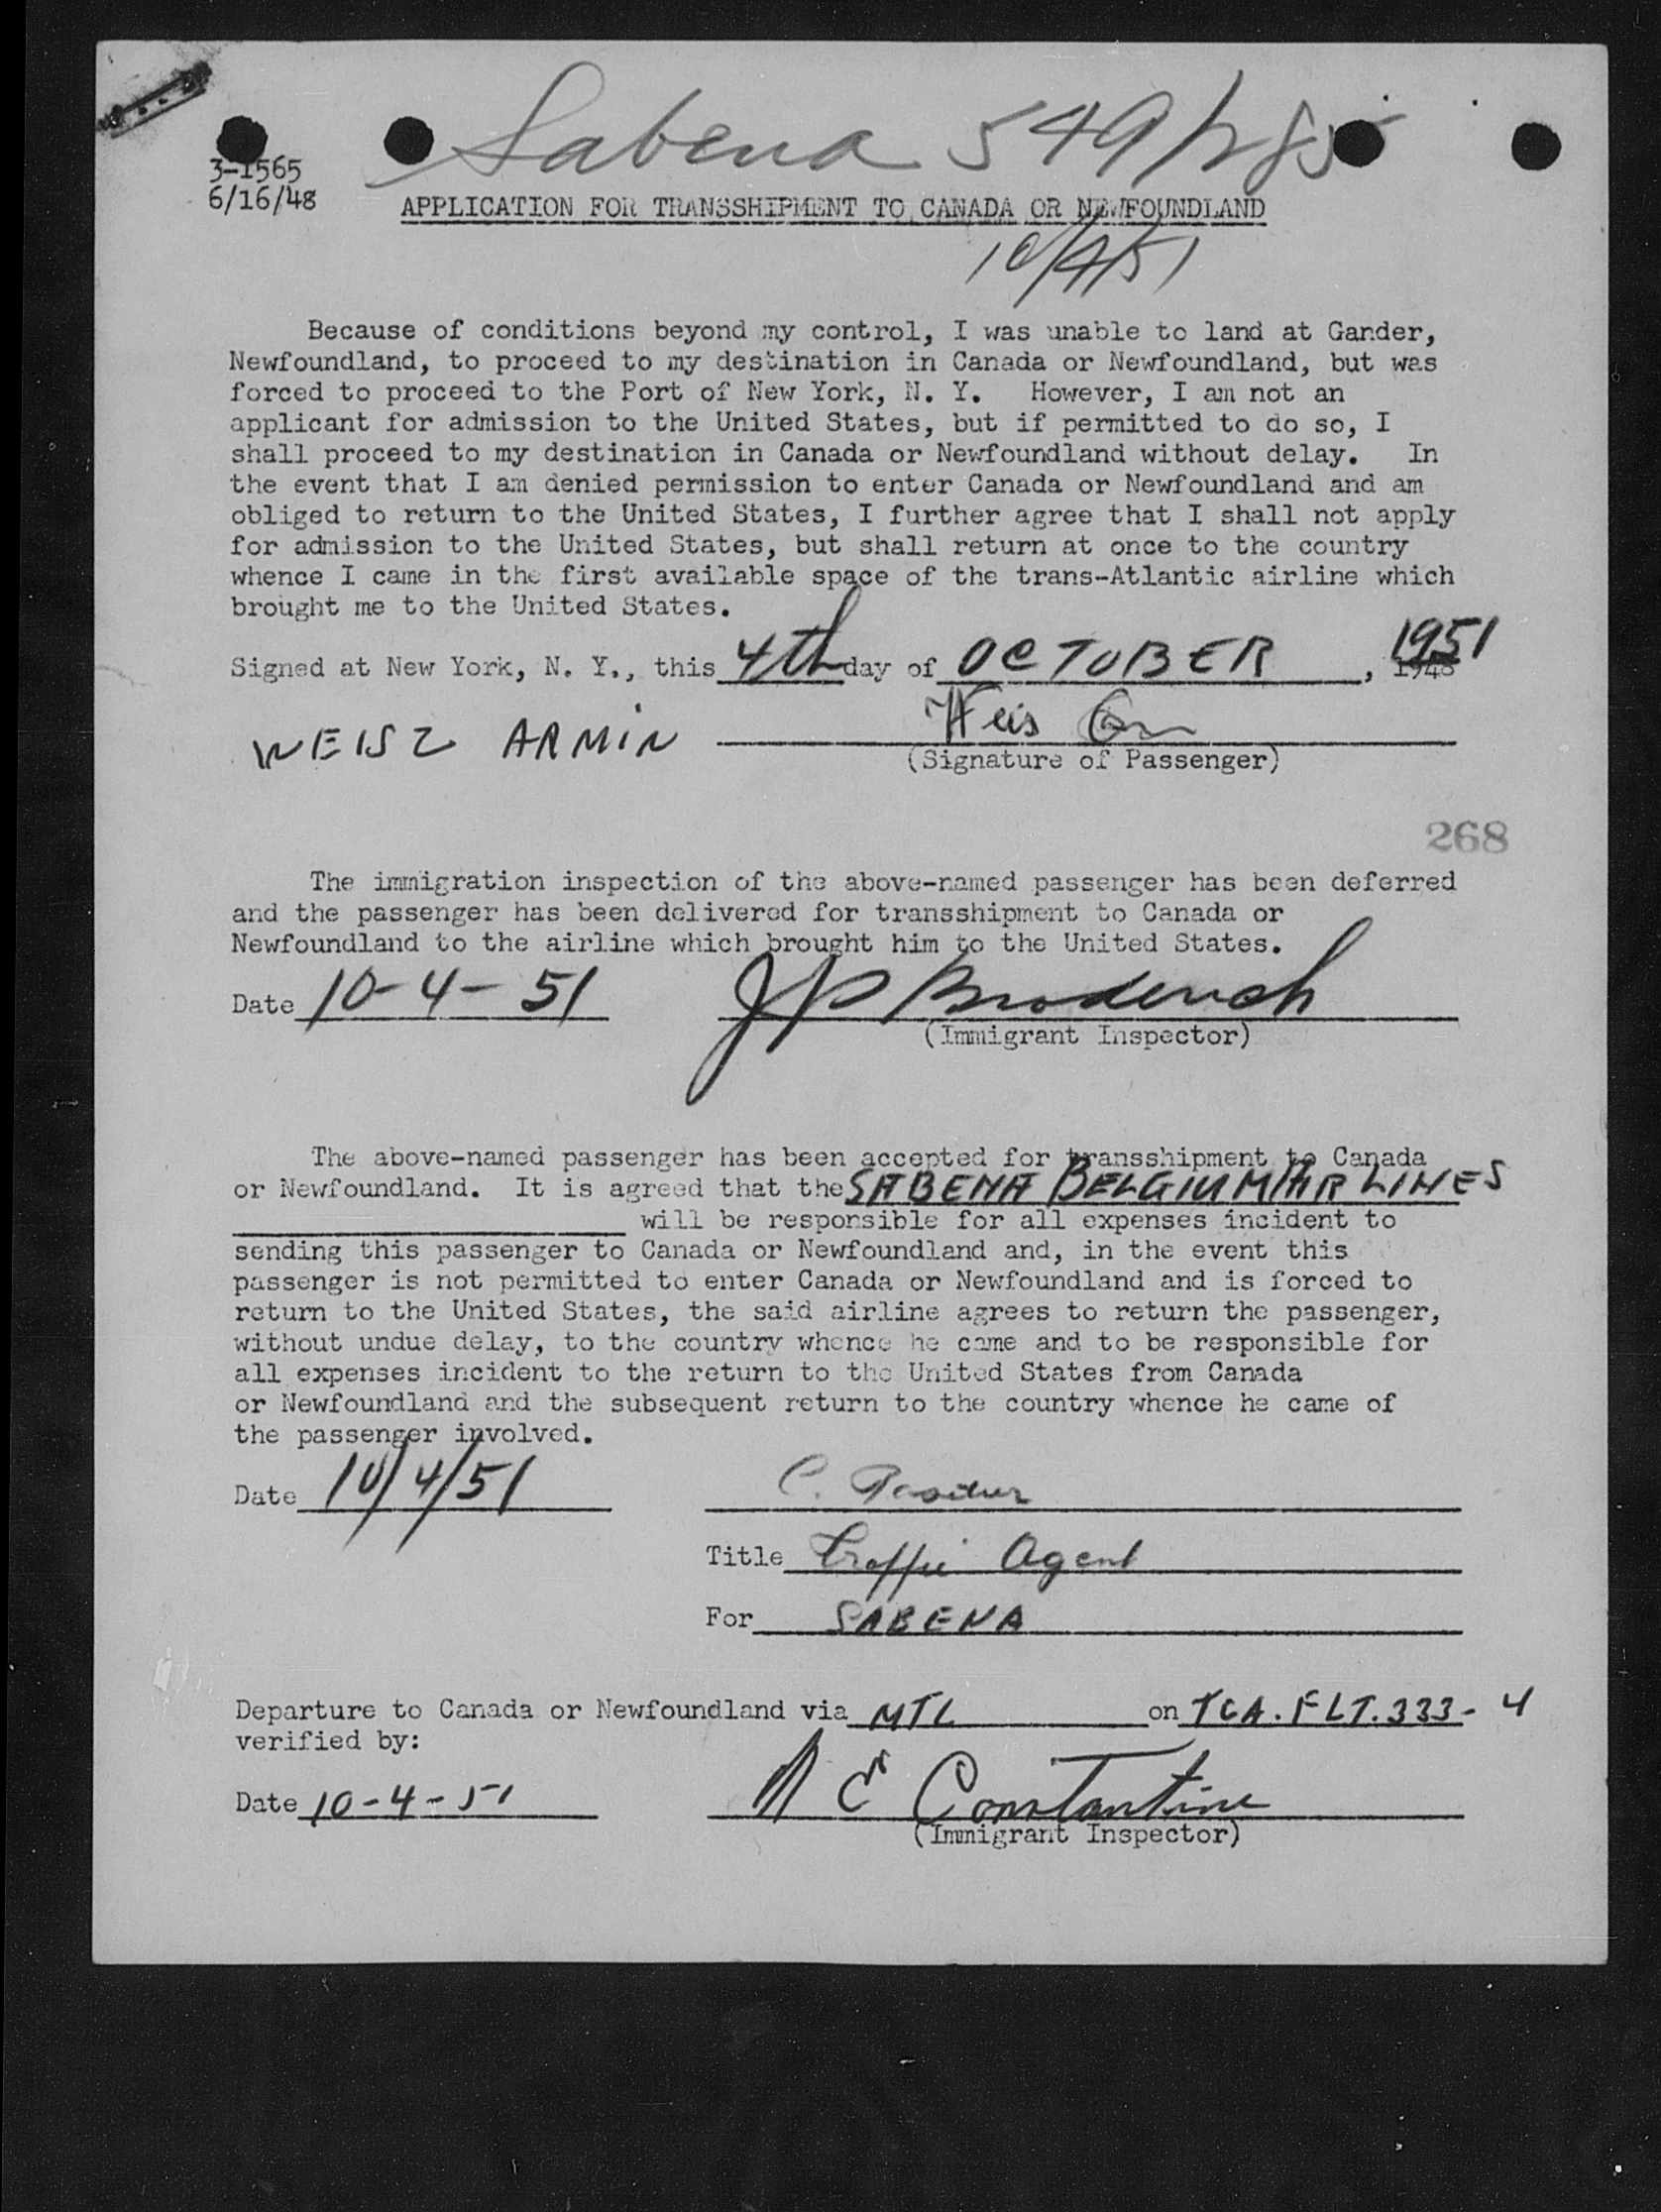 Sabena 549/
3-1565
6/16/48
APPLICATION FOR TRANSSHIPMENT TO CANADA OR NEWFOUNDLAND
10/4/51
Because of conditions beyond my control, I was unable to land at Gander,
Newfoundland, to proceed to my destination in Canada or Newfoundland, but was
forced to proceed to the Port of New York, N. Y. However, I am not an
applicant for admission to the United States, but if permitted to do so, I
shall proceed to my destination in Canada or Newfoundland without delay. In
the event that I am denied permission to enter Canada or Newfoundland and am
obliged to return to the United States, I further agree that I shall not apply
for admission to the United States, but shall return at once to the country
whence I came in the first available space of the trans-Atlantic airline which
brought me to the United States.
Signed at New York, N. Y., this 4th day of OCTOBER, 1951 1948
WEISZ ARMIN Weis
(Signature of Passenger)
268
The immigration inspection of the above-named passenger has been deferred
and the passenger has been delivered for transshipment to Canada or
Newfoundland to the airline which brought him to the United States.
Date 10-4-51 JP Broderick
(Immigrant Inspector)
The above-named passenger has been accepted for transshipment to Canada
or Newfoundland. It is agreed that the SABENA BELGIUM AIR LINES
will be responsible for all expenses incident to
sending this passenger to Canada or Newfoundland and, in the event this
passenger is not permitted to enter Canada or Newfoundland and is forced to
return to the United States, the said airline agrees to return the passenger,
without undue delay, to the country whence he came and to be responsible for
all expenses incident to the return to the United States from Canada
or Newfoundland and the subsequent return to the country whence he came of
the passenger involved.
Date 10/4/51 C.
Title Traffic Agent
For SABENA
Departure to Canada or Newfoundland via MTL on TCA. FLT. 333-4
verified by:
Date 10-4-51 E Constantine
(Immigrant Inspector)